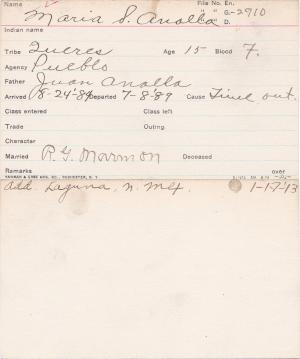 Name Maria S. Analla File No. En.
" " G- 2910
" " D.
Indian name
Tribe Queres Age 15 Blood F.
Agency Pueblo
Father Juan Analla
Arrived 8-24-84 Departed 7-8-89 Cause Time out.
Class entered Class left
Trade Outing
Character
Married R.G. Marmon Deceased
Remarks over
Add. Laguna, N. Mex. 1-17-13